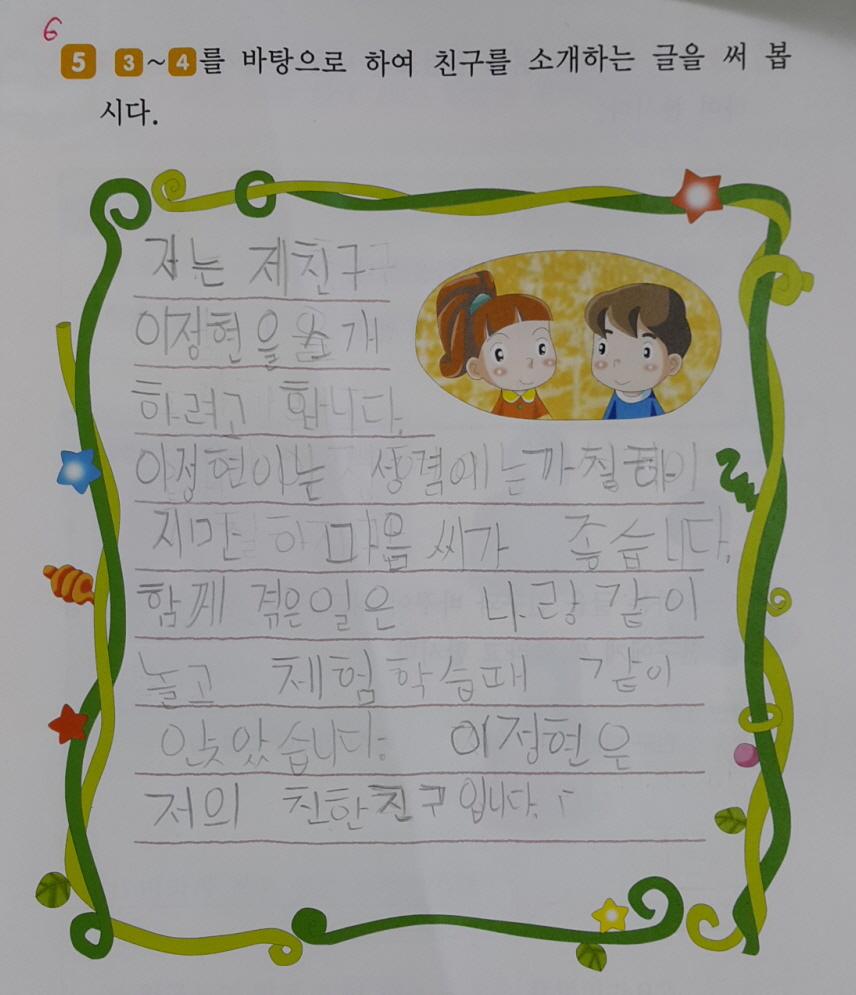 6
5 3~4를 바탕으로 하여 친구를 소개하는 글을 써 봅
시다.
저는 제친구
이정현을 소개
하려고 합니다.
이정현이는 성결에는까칠하이
지만 마음씨가 좋습니다.
함께 겪은일은 나랑 같이
놀고 체험학습때 같이
앉았습니다. 이정현은
저의 친한친구입니다.